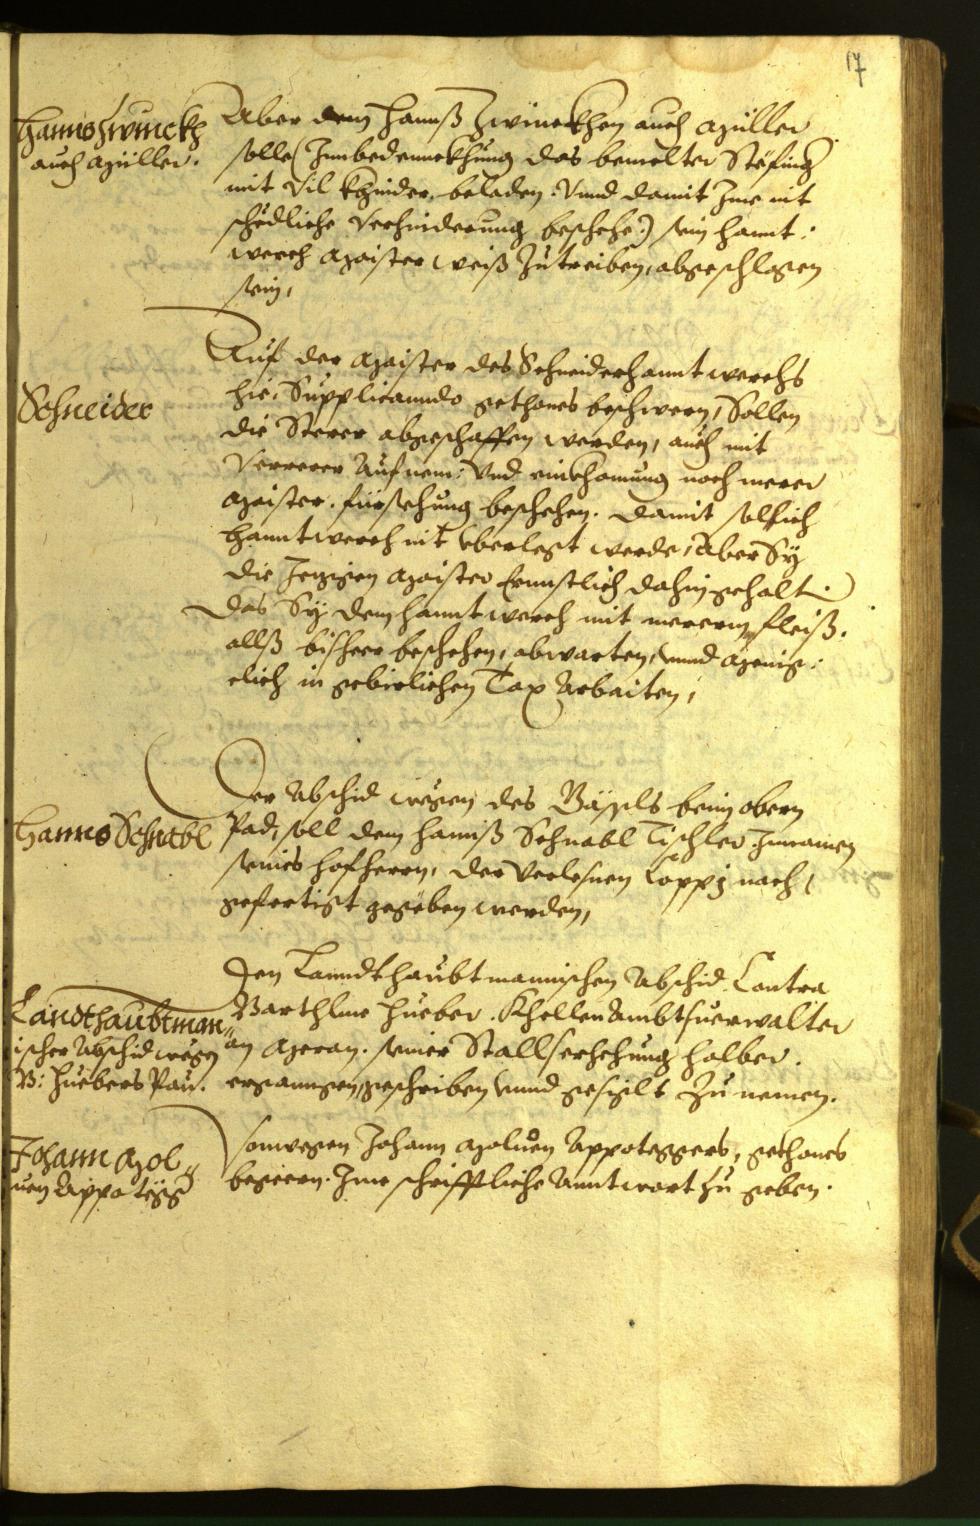 17
Hanns Zwinckh
auch Müller.
Aber dem Hannß Zwinckhen auch Müller
solle (Inn bedennckhung das bemelter Stefing
mit vil Khinder beladen. Vnnd damit Ime nit
schedliche verhinderung beschehe) sein hannt:
werch Maister weiß zutreiben, abgeschlagen
sein,
Schneider
Auf der Maister des Schneiderhanntwerchs
hie, Supplicanndo gethones beschwern, Sollen
die Sterer abgeschaffen werden, auch mit
verrerer Aufnem: Vnd einkhomung noch merer
Maister. fürsehung beschehen. damit solhich
hanntwerch nit vberlegt werde, Aber Sy
die Jezigen Maister Ernnstlich dahin gehalt:
das Sy dem hanntwerch mit mererm fleiß.
allß bisheer beschehen, abwarten, vnnd menig:
clich in gebirlichen Tax Arbaiten,
Hanns Schnabl
Der Abschid wegen des Gässls beim obern
Pad, soll dem Hannß Schnabl Tischler Innamen
seines hofherrn, der verlesnen Coppj nach,
gefertigt gegeben werden,
Landthaubtman„
ischer Abschid wegen
B: Huebers Pau.
Den Lanndthaubtmannischen Abschid Contra
Barthlme Hueber. Khellen Ambtsuerwalter
an Meran. seiner Stallserhehung halber.
erganngen, geschriben vnnd gesiglt zu nemen.
Johann Mol„
uen Appotegg
Vonwegen Johann Moluen Appoteggers, gethones
begeern. Ime schrifftliche Anntwort zu geben.